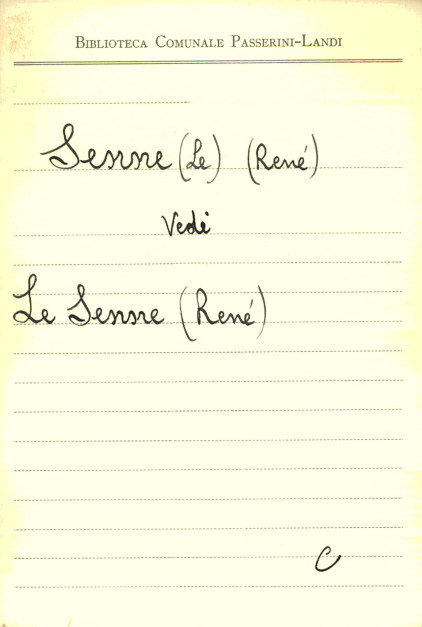 Biblioteca Comunale Passerini-Landi
Senne (Le) (René)
Vedi
Le Senne (René)
C